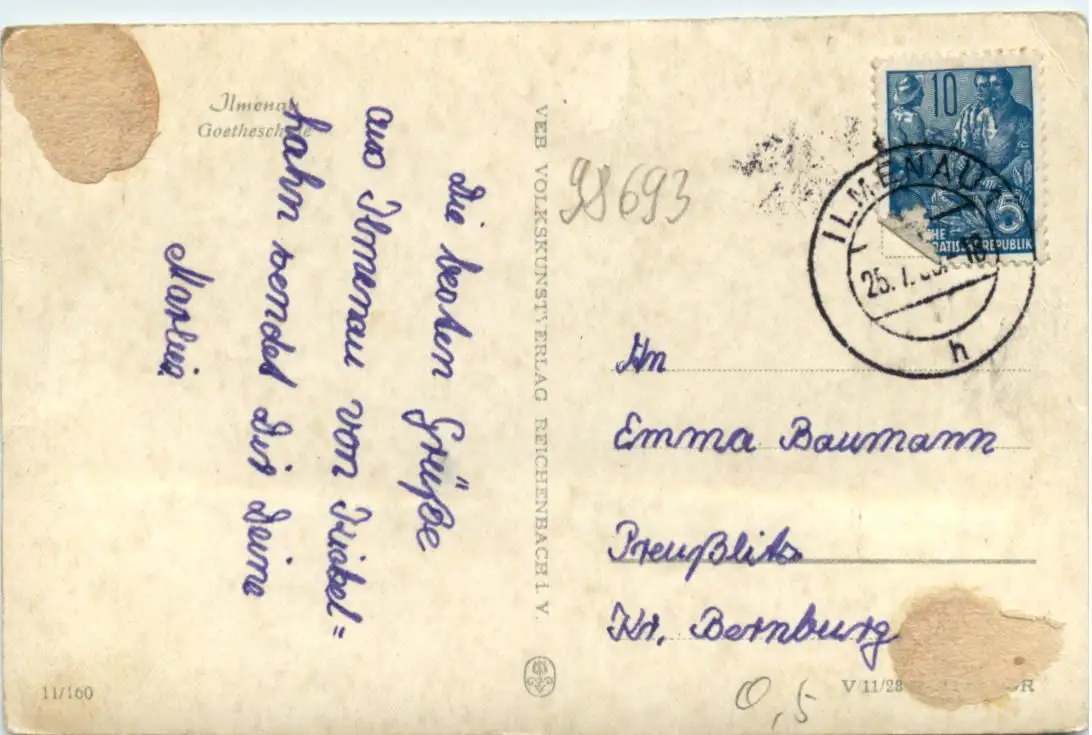 Ilmenau
Goetheschule
Die besten Grüße
aus Ilmenau von Kickel=
hahn sendet Dir Deine
VEB VOLKSKUNSTVERLAG REICHENBACH i. V.
98693
10
5
REPUBLIK
ILMENAU
25.7.
18
h
An
Emma Baumann
Preußlitz
Kr. Bernburg
11/160
V/11/28
0,5